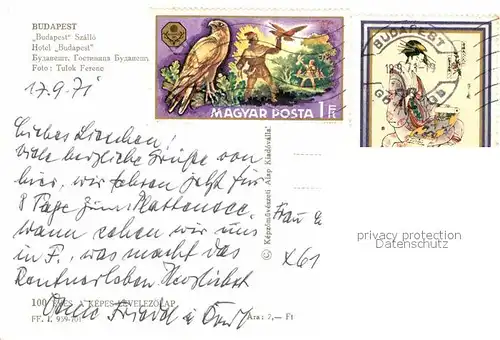 BUDAPEST
„Budapest" Szálló
Hotel „Budapest"
Будапешт. Гостиница Будапешт.
Foto: Tulok Ferenc
17.9.71
Liebes Lienchen!
Viele herzliche Grüße von
hier, wir fahren jetzt für
8 Tage zum Plattensee.
wann sehen wir uns
in F., was macht das
Rentnerleben Herzlichst
MAGYAR POSTA 1 Ft
BUDAPEST
© Képzőművészeti Alap Kiadóvállalat
Frau
X61
privacy protection
Datenschutz
100 ÉVES A KÉPES LEVELEZŐLAP
Ára: 2,— Ft